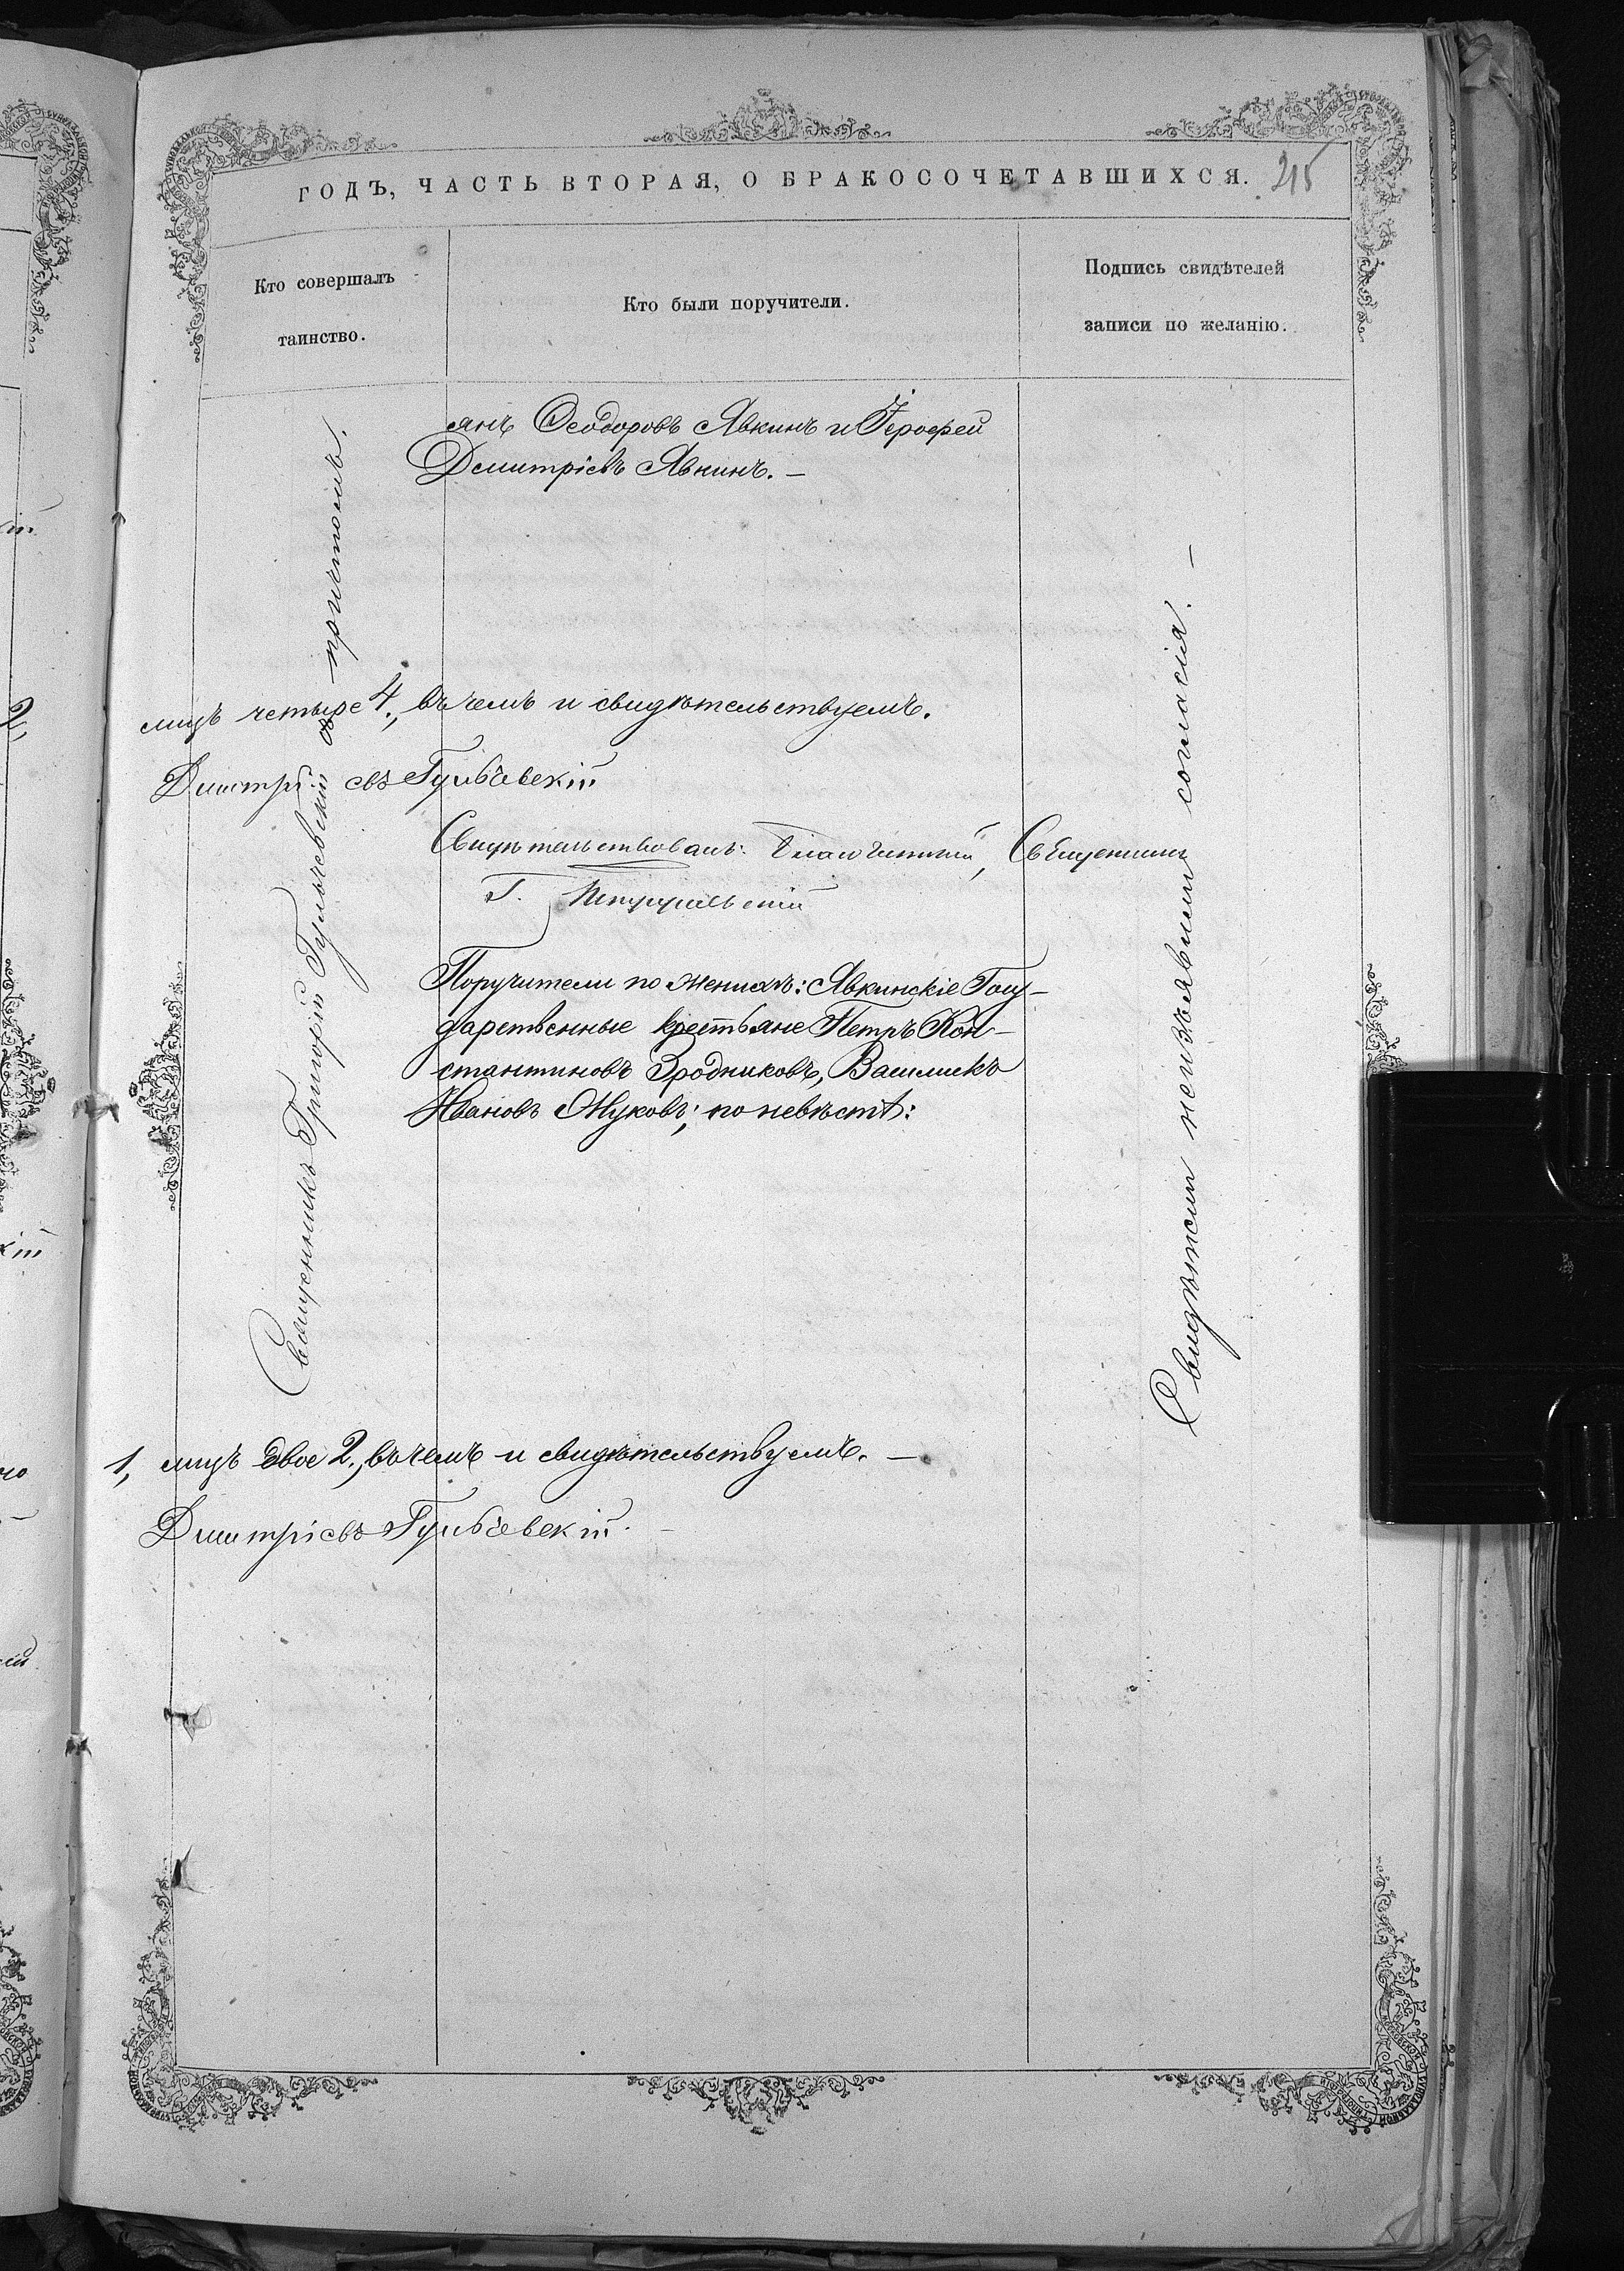 ГОДЪ, ЧАСТЬ ВТОРАЯ, О БРАКОСОЧЕТАВШИХСЯ. 215
Кто совершалъ
таинство.
Кто были поручители.
Подпись свидѣтелей
записи по желанію.
янъ Ѳеодоровъ Явкинъ и Іероѳей
Дмитріевъ Явкинъ. —
Священникъ Григорій Гульчевскій съ причтомъ.
Свидѣтели неизъявили согласія. —
лицъ четыре 4., въ чемъ и свидѣтельствуемъ.
Дмитріевъ Гульчевскій
Свидѣтельствовалъ: Благочинный, Священникъ
Г.
Поручители по женихѣ: Явкинскіе Госу-
дарственные крестьяне Петръ Кон-
стантиновъ Бродниковъ, Василискъ
Ивановъ Жуковъ; по невѣстѣ:
1, лицъ двое 2., въ чемъ и свидѣтельствуемъ. —
Дмитріевъ Гульчевскій. —